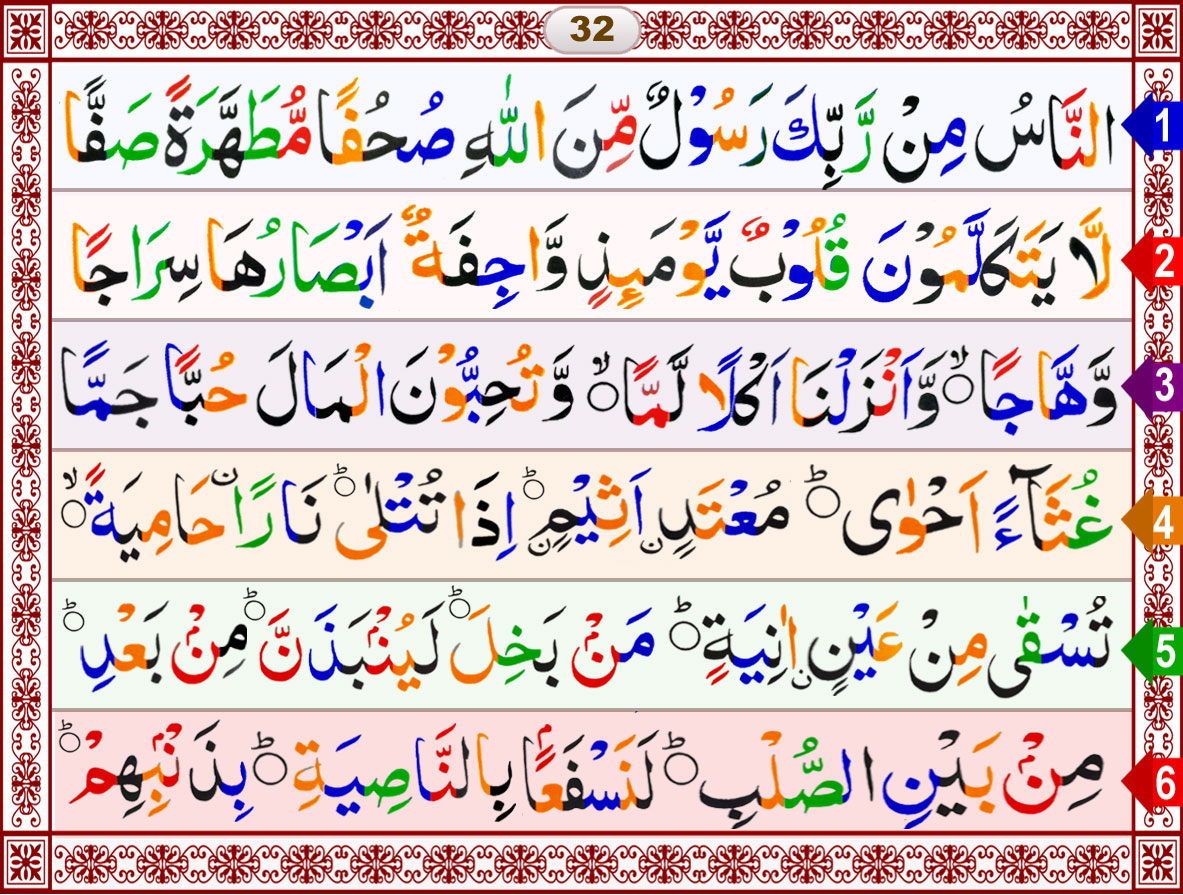 32
1 النَّاسُ مِنْ رَّبِّكَ رَسُوْلٌ مِّنَ اللّٰهِ صُحُفًا مُّطَهَّرَةً صَفًّا
2 لَّا يَتَكَلَّمُوْنَ قُلُوْبٌ يَّوْمَىِٕذٍ وَّاجِفَةٌ اَبْصَارُهَا سِرَاجًا
3 وَّهَّاجًا ۙ وَّاَنْزَلْنَا اَكْلًا لَّمًّا ۙ وَّتُحِبُّوْنَ الْمَالَ حُبًّا جَمًّا
4 غُثَآءً اَحْوٰى ؕ مُعْتَدٍ اَثِيْمٍ ؕ اِذَا تُتْلٰى ؕ نَارًا حَامِيَةً ۙ
5 تُسْقٰى مِنْ عَيْنٍ اٰنِيَةٍ ؕ مَنْۢ بَخِلَ ؕ لَيُنْۢبَذَنَّ ؕ مِنْۢ بَعْدِ ؕ
6 مِنْۢ بَيْنِ الصُّلْبِ ؕ لَنَسْفَعًۢا بِالنَّاصِيَةِ ؕ بِذَنْۢبِهِمْ ؕ